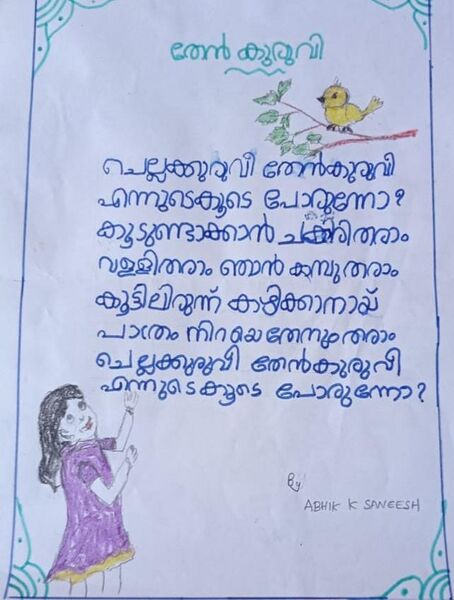 തേൻ കുരുവി
ചെല്ലക്കുരുവീ തേൻകുരുവീ
എന്നുടെകൂടെ പോരുന്നോ?
കൂടുണ്ടാക്കാൻ ചകിരിതരാം
വള്ളിതരാം ഞാൻ കമ്പുതരാം
കൂട്ടിലിരുന്ന് കഴിക്കാനായ്
പാത്രം നിറയെതേനുംതരാം
ചെല്ലക്കുരുവീ തേൻകുരുവീ
എന്നുടെകൂടെ പോരുന്നോ?
By
ABHIK K SANEESH